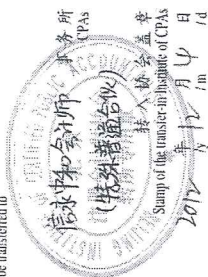 be transferred to
信永中和会计师 事务所
CPAs
(特殊普通合伙)
转入协会盖章
Stamp of the transfer-in Institute of CPAs
2012 年 12 月 4 日
/m /d